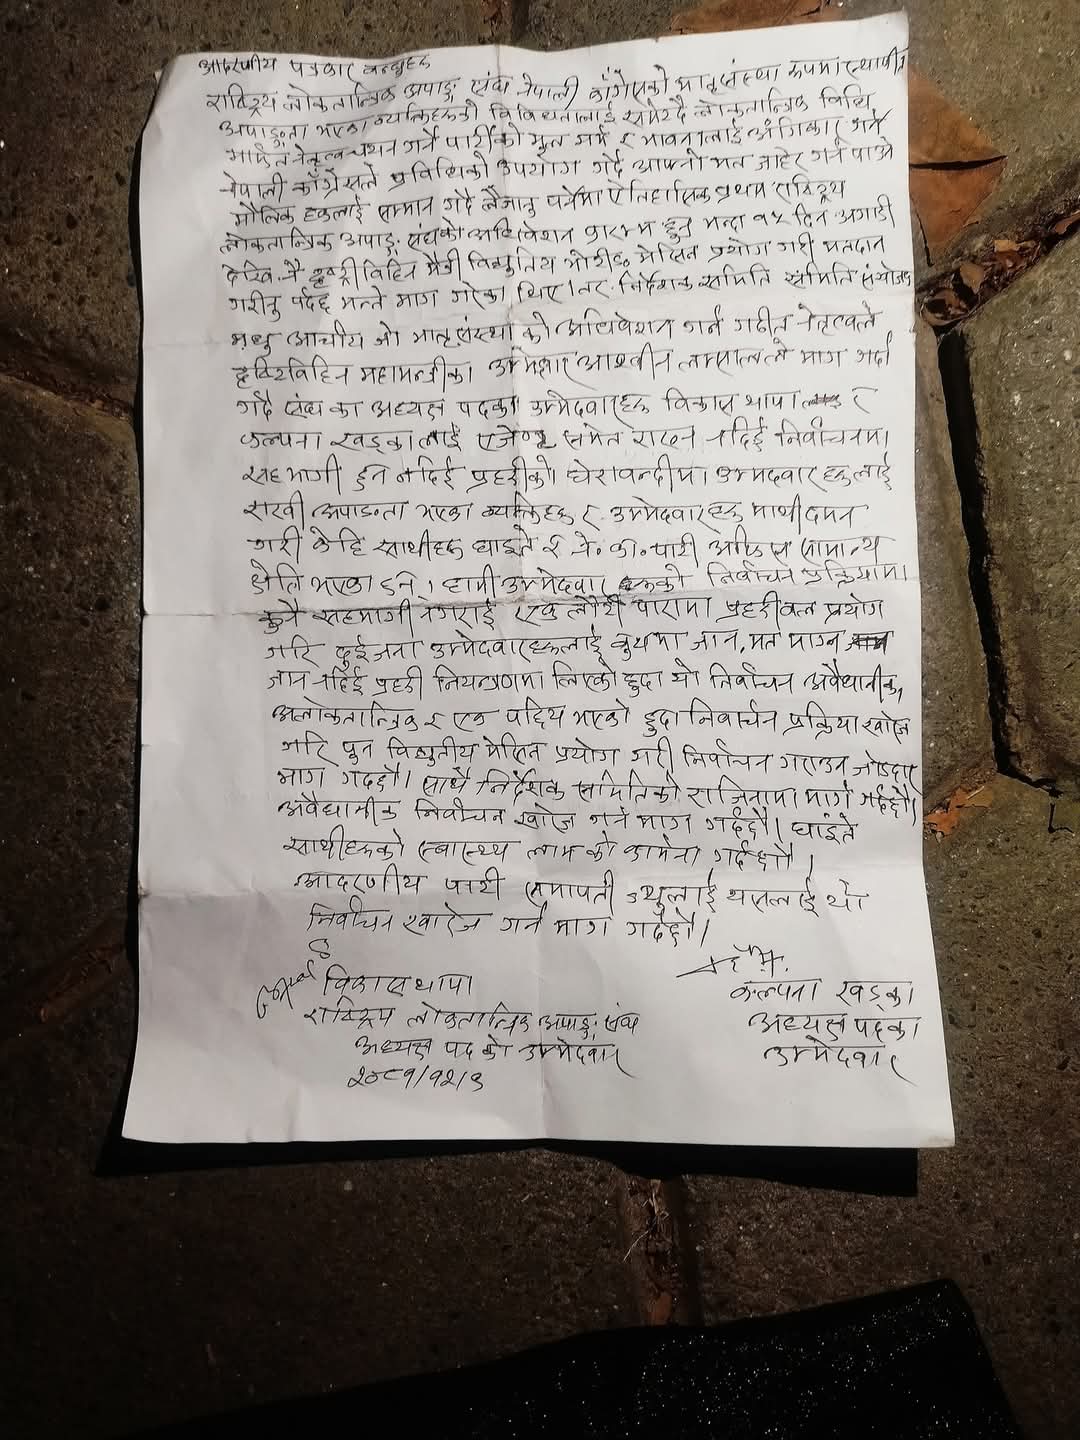 आदरणीय पत्रकार बन्धुहरु
राष्ट्रिय लोकतान्त्रिक अपाङ्ग संघ नेपाली काँग्रेसको भातृसंस्था रुपमा स्थापित
अपाङ्गता भएका व्यक्तिहरुको विविधतालाई समेट्दै लोकतान्त्रिक विधि
मार्फत नेतृत्व चयन गर्ने पार्टीको मुल मर्म र भावनालाई अंगिकार गर्न
नेपाली काँग्रेसले प्रविधिको उपयोग गर्दै आफ्नो मत जाहेर गर्न पाउने
मौलिक हकलाई सम्मान गर्दै लैजानु पर्नेमा ऐतिहासिक प्रथम राष्ट्रिय
लोकतान्त्रिक अपाङ्ग संघको अधिवेशन प्रारम्भ हुनु भन्दा १५ दिन अगाडी
देखि नै दृष्टीविहिन मैत्री विद्युतिय भोटिङ मेसिन प्रयोग गरी मतदान
गरीनु पर्दछ भन्ने माग गरेका थियौ तर निर्देशक समिति संयोजक
मधु आचार्य जो भातृसंस्था को अधिवेशन गर्न गठीत नेतृत्वले
दृष्टिविहिन महामन्त्रीका उम्मेद्वार आश्वीन लम्सालले माग गर्दा
गर्दै संघ का अध्यक्ष पदका उम्मेदवारहरु विकास थापा र
कल्पना खड्का लाई एजेण्ट समेत राख्न नदिई निर्वाचनमा
सहभागी हुन नदिई प्रहरीको घेरावन्दीमा उम्मेदवार हरुलाई
राखी अपाङ्गता भएका व्यक्तिहरु र उम्मेदवारहरु माथी दमन
गरी केहि साथीहरु घाइते र ने. का. पार्टी अफिस सामान्य
क्षेति भएका छन् । हामी उम्मेदवार हरुको निर्वाचन प्रक्रियामा
कुनै सहभागी नगराई एक लौटी पारामा प्रहरी बल प्रयोग
गरि दुई जना उम्मेदवारहरुलाई बुथमा जान, मत माग्न
जान नदिई प्रहरी नियन्त्रणमा लिएको हुदा यो निर्वाचन अवैधानीक,
अलोकतान्त्रिक र एक पछिय भएको हुदा निर्वाचन प्रक्रिया खारेज
गरि पुन विद्युतीय मेसिन प्रयोग गरी निर्वाचन गराउन जोडदार
माग गर्दछौ। साथै निर्देशक समितिको राजिनामा माग गर्दछौ।
अवैधानीक निर्वाचन खारेज गर्न माग गर्दछौ। घाइते
साथीहरुको स्वास्थ्य लाभ को कामना गर्दछौ ।
आदरणीय पार्टी सभापती ज्यूलाई यसलाई यो
निर्वाचन खारेज गर्न माग गर्दछौ।
विकास थापा
राष्ट्रिय लोकतान्त्रिक अपाङ्ग संघ
अध्यक्ष पद को उम्मेदवार
२०८१/१२/९
कल्पना खड्का
अध्यक्ष पदका
उम्मेदवार